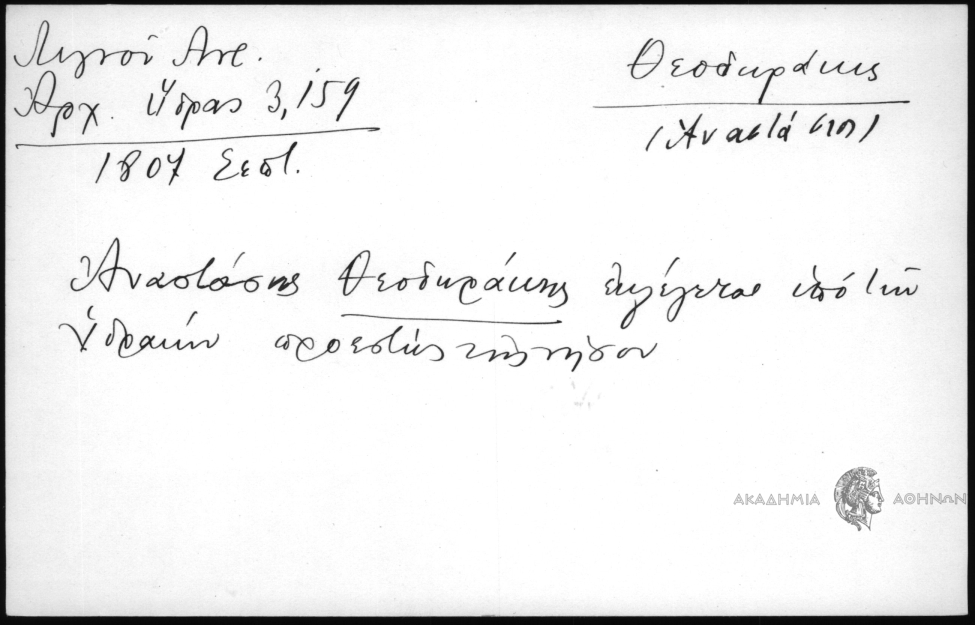 Λιγνοῦ Ἀντ.
Ἀρχ. Ὕδρας 3, 159
1807 Σεπτ.
Θεοδωράκης
(Ἀναστάσιος)
Ἀναστάσης Θεοδωράκης ἐκλέγεται ὑπὸ τῶν
Ὑδραίων προεστὼς τῆς νήσου
ΑΚΑΔΗΜΙΑ ΑΘΗΝΩΝ